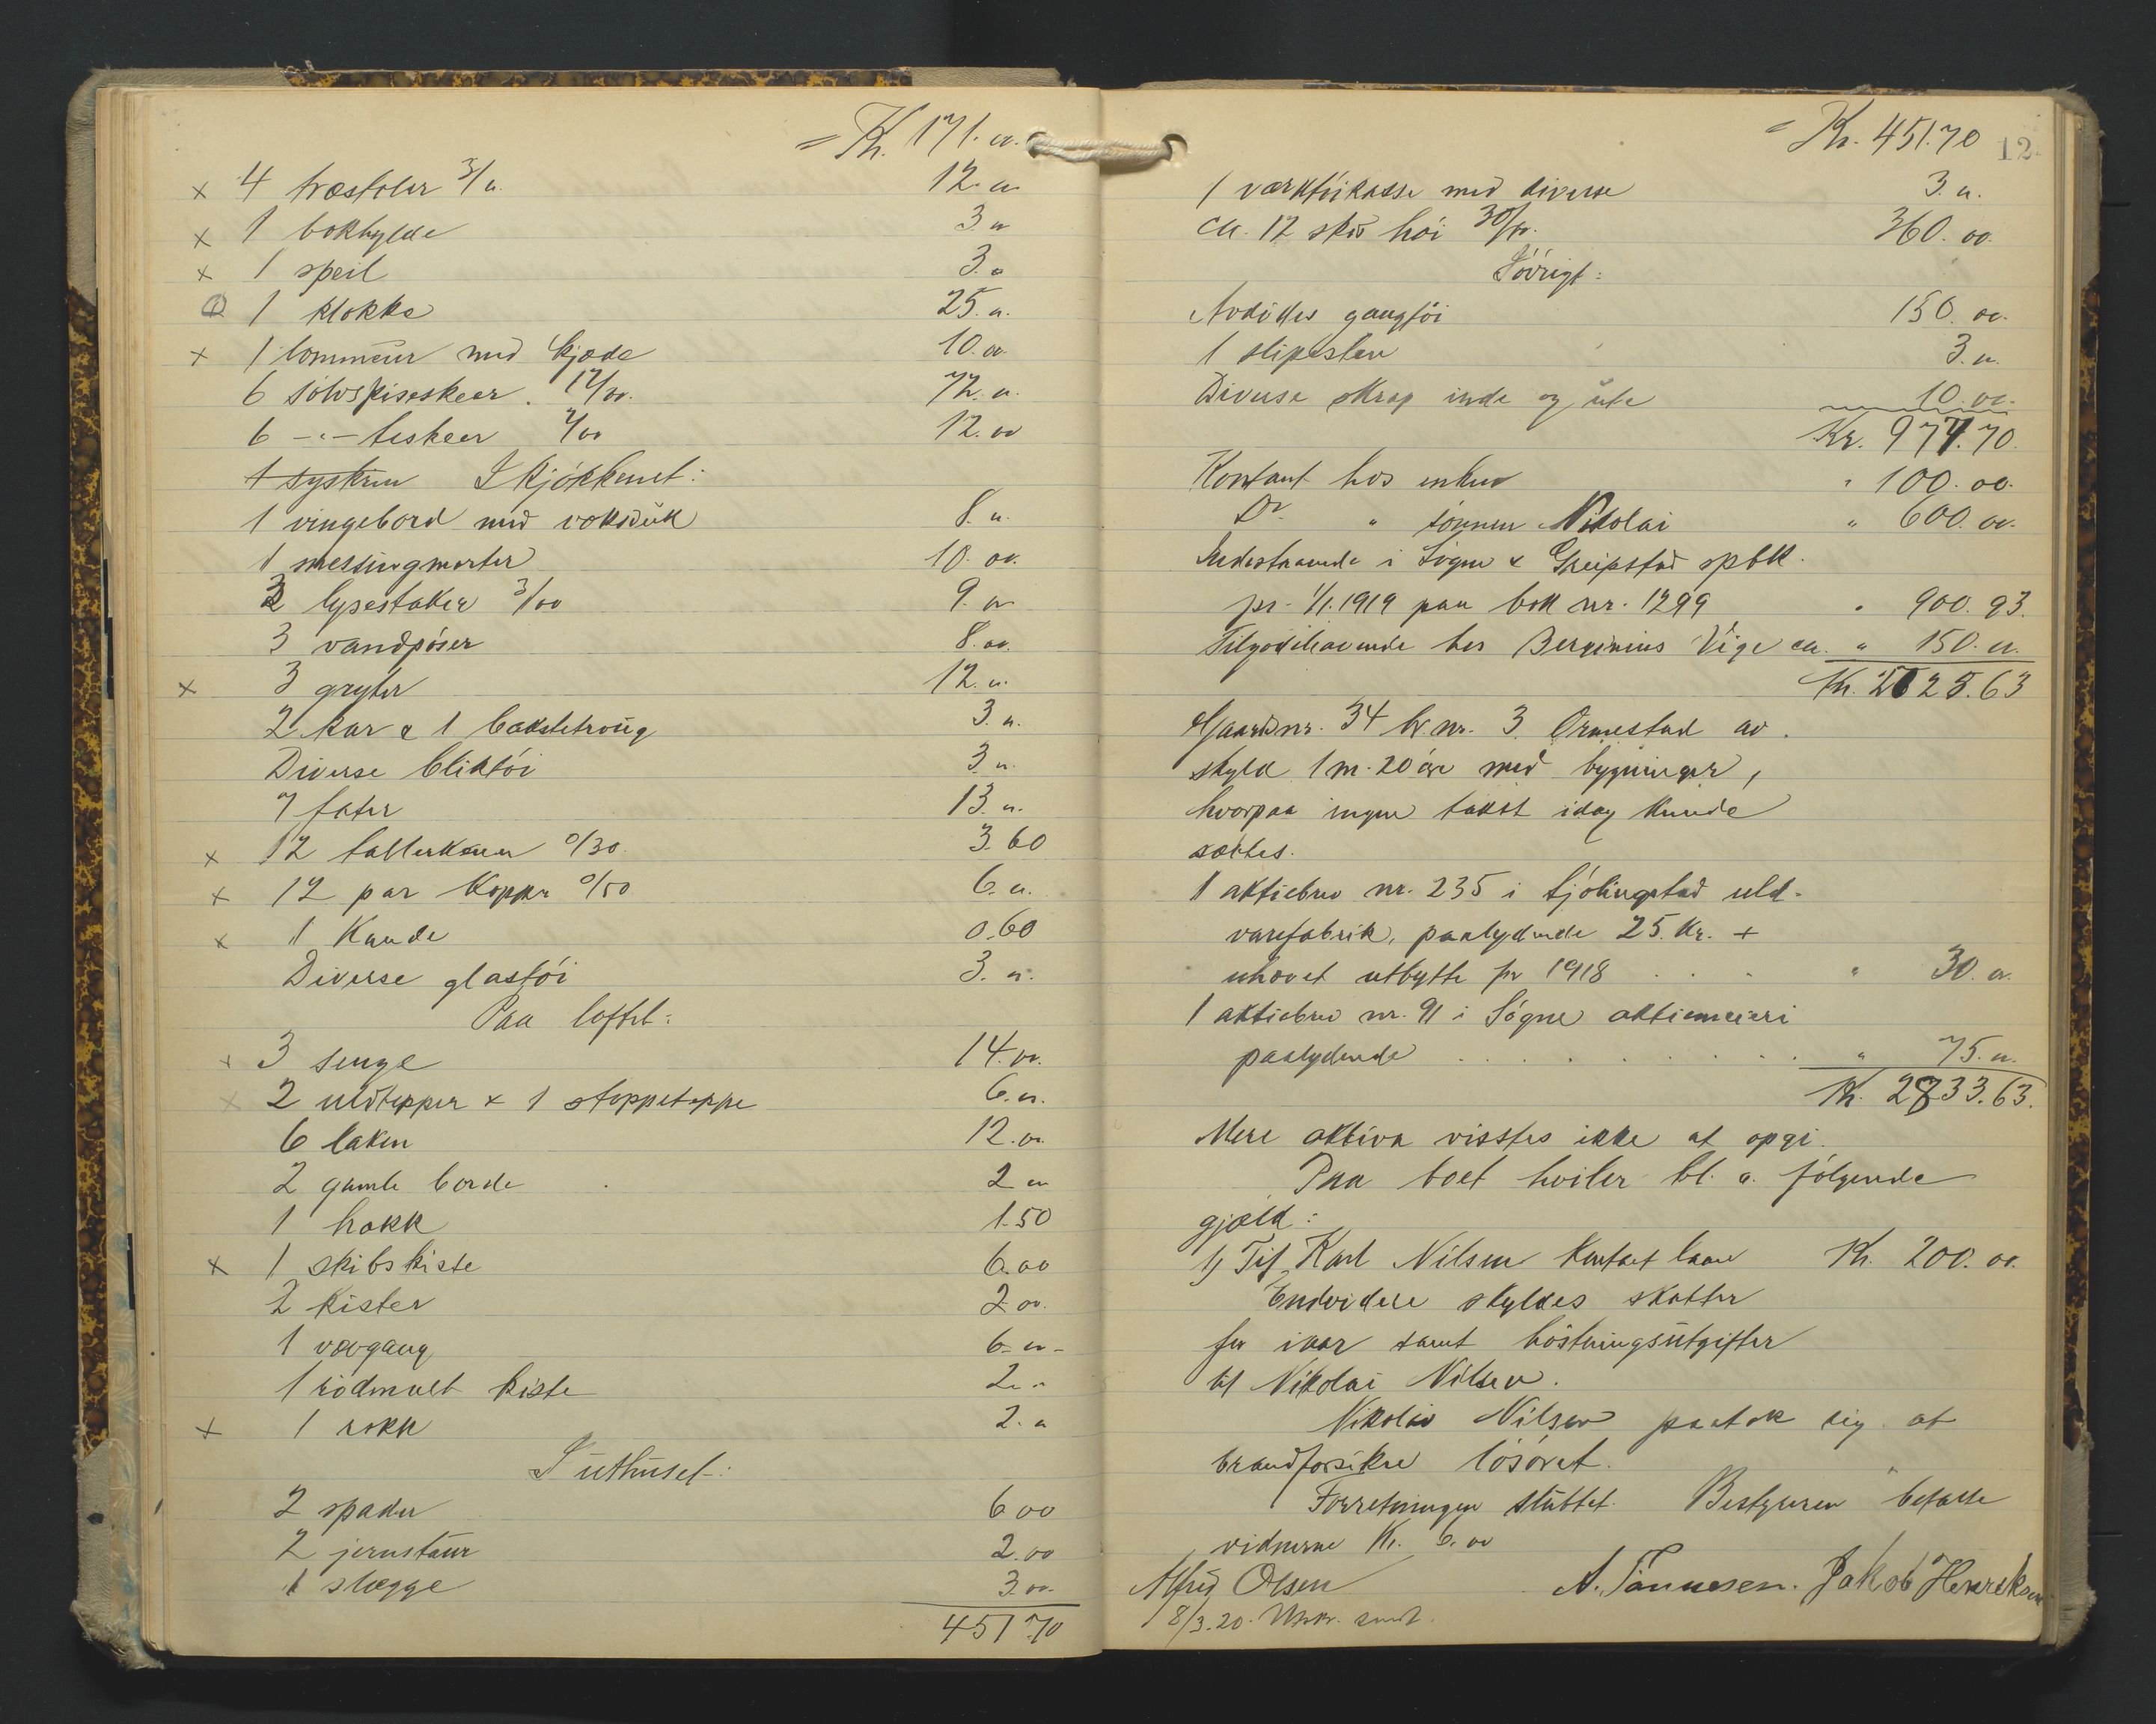 = Kr. 171.00.
x 4 træstoler 3/00. 12.00
x 1 bokhylde 3.00
x 1 speil 3.00
1 klokke 25.00.
x 1 lommeur med kjæde 10.00.
6 sølvspiseskeer. 12/00. 72.00.
6 -"- teskeer 2/00 12.00
1 syskrin I kjøkkenet:
1 vingebord med voksduk 8.00.
1 messingmorter 10.00.
3 lysestaker 3/00 9.00
3 vandpøser 8.00.
x 3 gryter 12.00.
2 kar & 1 bakstetroug 3.00.
Diverse bliktøi 3.00.
7 fater 13.00.
x 12 tallerkener 0/30. 3.60
x 12 par kopper 0/50 6.00.
x 1 Kande 0.60
Diverse glastøi 3.00.
Paa loftet:
x 3 senge 14.00.
x 2 uldtepper & 1 stoppeteppe 6.00.
6 laken 12.00.
2 gamle borde 2.00
1 hakk 1.50
x 1 skibskiste 6.00
2 kister 2.00.
1 vævgang 6.00-
1 rødmalt kiste 2.00
x 1 rokk 2.00
I uthuset:
2 spader 6.00
2 jernstaur 2.00
1 slegge 3.00.
451.70
= Kr. 451.70 12
1 værktøikasse med diverse 3.00.
ca. 12 skp høi 30/00. 360.00.
Iøvrigt:
Avdødes gangtøi 150.00.
1 slipesten 3.00.
Diverse skrap inde og ute 10.00.
Kr. 977.70.
Kontant hos enken " 100.00.
Do. " sønnen Nikolai " 600.00.
Indestaaende i Søgne & Greipstad spbk.
pr. 1/1.1919 paa bok nr. 1299 " 900.93.
Tilgodehavende hos Berginius Vige ca. " 150.00.
Kr. 2628.63
Gaardsnr. 34 br.nr. 3 Ormestad av
skyld 1 m. 20 øre med bygninger,
hvorpaa ingen takst idag kunde
sættes.
1 aktiebrev nr. 235 i Sjølingstad uld-
varefabrik, paalydende 25. Kr. +
uhævet utbytte for 1918 . . . " 30.00.
1 aktiebrev nr. 91 i Søgne aktiemeieri
paalydende . . . . . . . . " 75.00.
Kr. 2733.63.
Mere aktiva visstes ikke at opgi.
Paa boet hviler bl. a. følgende
gjæld:
1) Til Karl Nilsen kontant laan Kr. 200.00.
Endvidere skyldes skatter
for iaar samt høstningsutgifter
til Nikolai Nilsen.
Nikolai Nilsen paatok sig at
brandforsikre løsøret.
Forretningen sluttet. Bestyreren betalte
vidnerne Kr. 6.00
Alfred Olsen A. Tønnesen. Jakob Henriksen
18/3.20. Utskr. sendt.